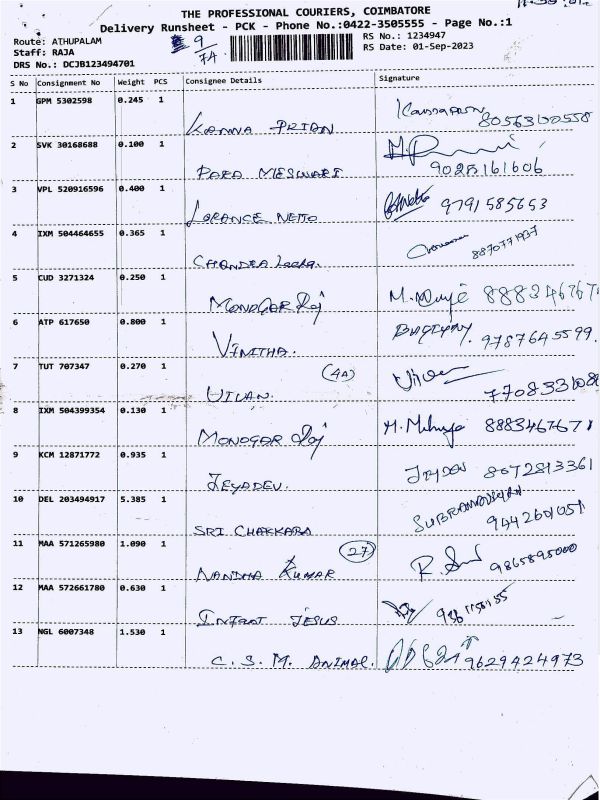 THE PROFESSIONAL COURIERS, COIMBATORE
Delivery Runsheet - PCK - Phone No.:0422-3505555 - Page No.:1
Route: ATHUPALAM 9 RS No.: 1234947
Staff: RAJA 7A RS Date: 01-Sep-2023
DRS No.: DCJB123494701
S No Consignment No Weight PCS Consignee Details Signature
1 GPM 5302598 0.245 1
KANNA PRIAN 8056310558
2 SVK 30168688 0.100 1
PARA MESWARI 9025161606
3 VPL 520916596 0.400 1
LORANCE NETTO 9791585653
4 IXM 504464655 0.365 1
CHANDRA 8870771937
5 CUD 3271324 0.250 1
MONOGAR Raj
6 ATP 617650 0.800 1
VINITHA. 9787645599.
7 TUT 707347 0.270 1 (4A)
UILAN.
8 IXM 504399354 0.130 1
MONOGAR Raj 8883467671
9 KCM 12871772 0.935 1
JEYADEV. JEYDEV 8072813361
10 DEL 203494917 5.385 1 SUBRAMANIYAN
SRI CHAKKARA 9442601051
11 MAA 571265980 1.090 1 27
NANDHA KUMAR 9865895000
12 MAA 572661780 0.630 1
INFANT JESUS
13 NGL 6007348 1.530 1
C. S. M. ANIMAL. 9629424973